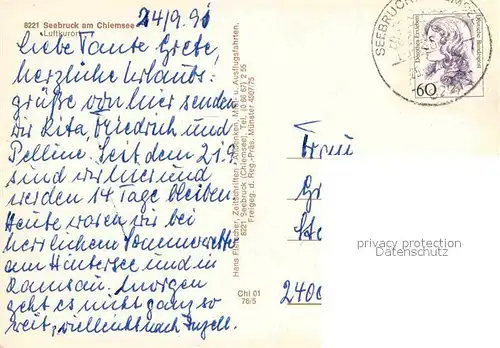 8221 Seebruck am Chiemsee
Luftkurort
24/9. 91
Liebe Tante Grete,
herzliche Urlaubs-
grüße von hier senden
Dir Rita, Friedrich und
Seit dem 21.9.
sind wir hier und
werden 14 Tage bleiben
Heute waren wir bei
herrlichem Sommerwetter
am Hintersee und in
Ramsau. Morgen
geht es nicht ganz so
weit, vielleicht nach Inzell.
Zeitschriften, Andenken, Mal- u. Ausflugsfahrten,
8221 Seebruck (Chiemsee), Tel. (0 86 67) 2 55
Freigeg. d. Reg.-Präs. Münster 4507/75
Chi 01
76/5
SEEBRUCK, CHIEMSEE
Deutsche Bundespost
60
Frau
Gr
Ste
2400
privacy protection
Datenschutz